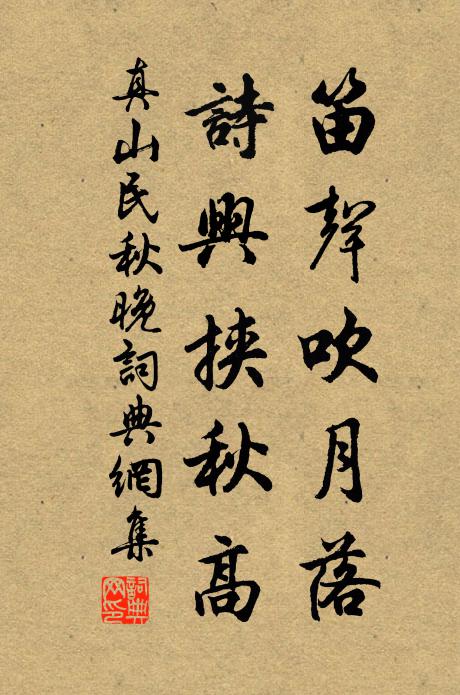 笛聲吹月落
詩興挾秋高
真山民秋晚詞典網集
詞典网印